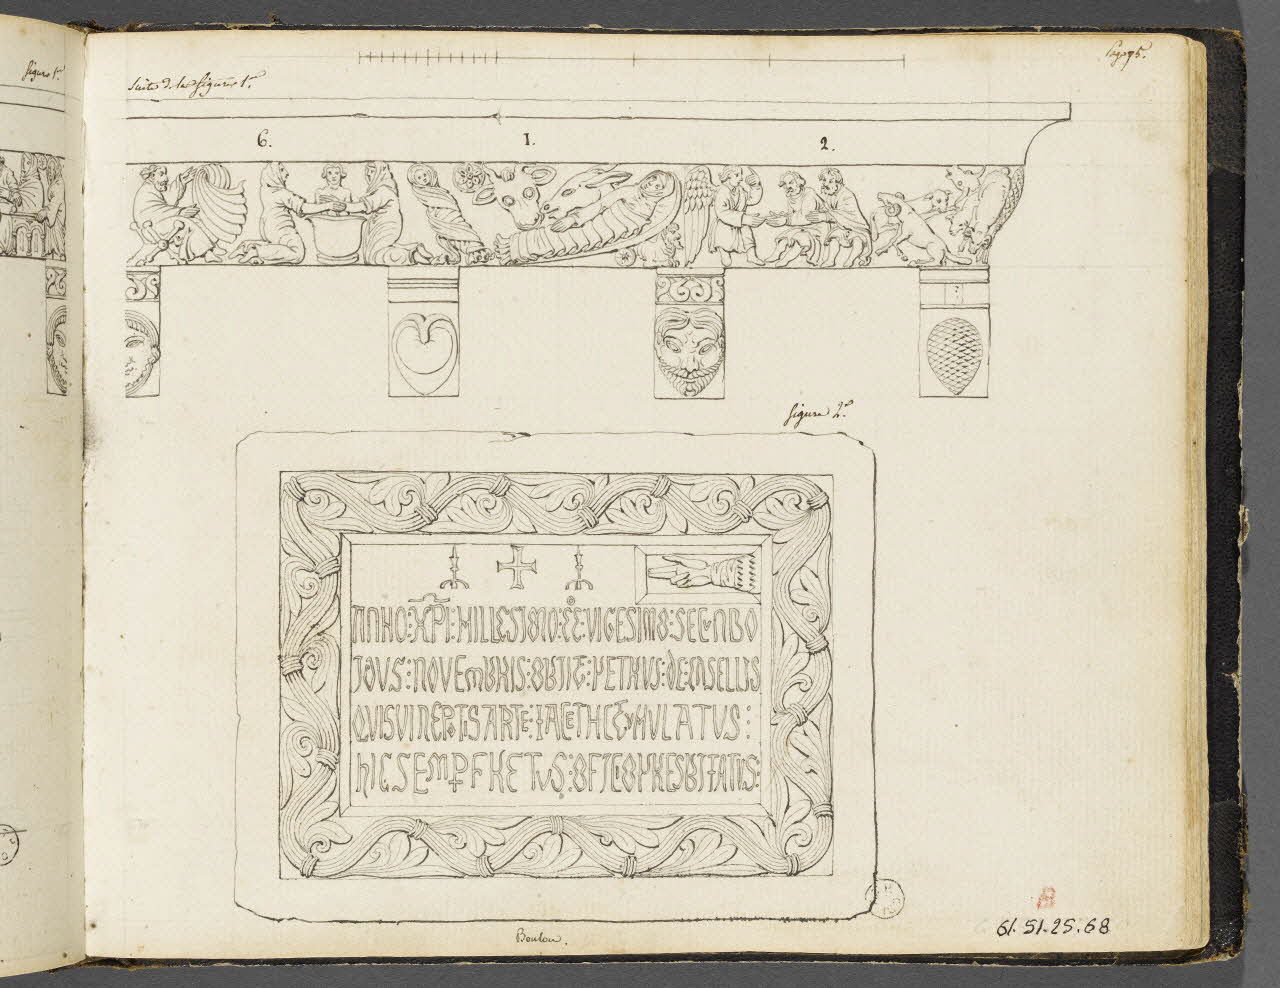 figure 1.re
Page 95.
suite de la figure 1.re
6. 1. 2.
figure 2.e
ANNO : XPI : MILLESIMO : CC : VIGESIMO : SECUNDO
IDUS : NOVEMBRIS : OBIIT : PETRUS : DE : MSELLIS
QUI SUI NEPTIS ARTE : IACET HIC TUMULATUS :
HIC SEMP FRETUS : OFICIO PRESBITATUS :
Boulou.
61.51.25.68